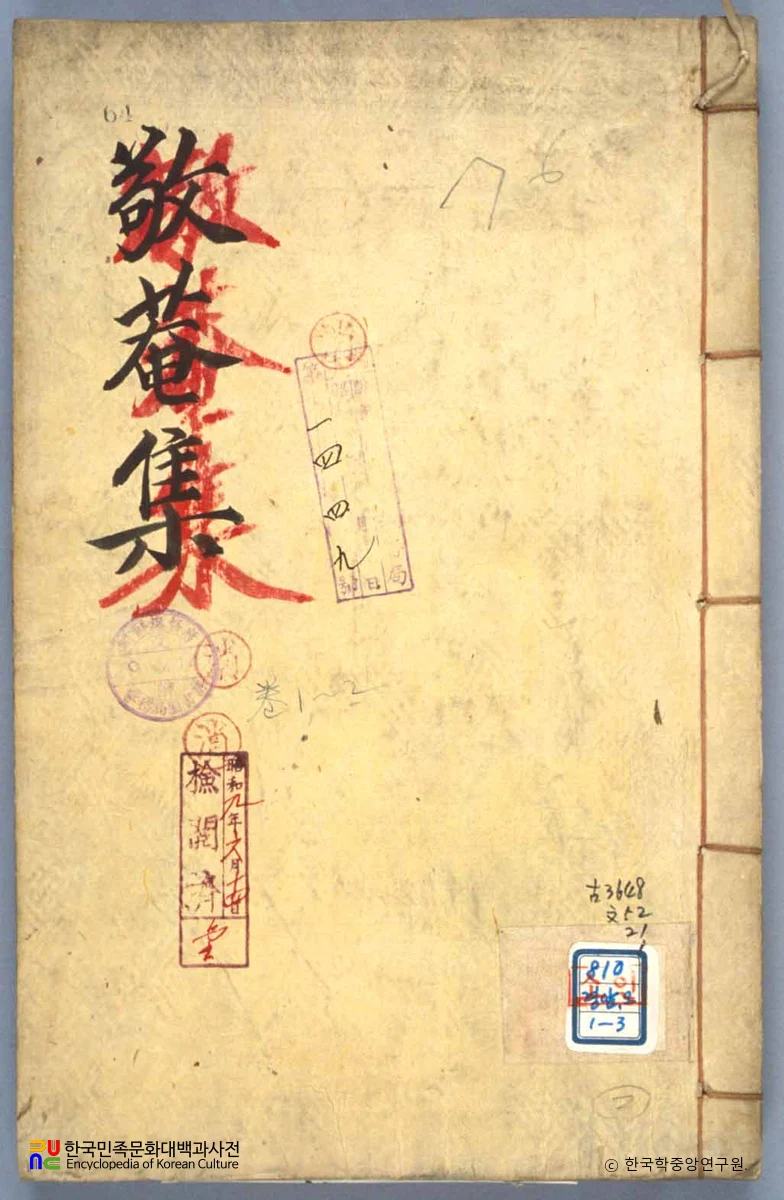 64
敬菴集
76
一四四九
局
日
卷1~2
消
昭和九年六月
檢閱濟
古3648
文52
21
810
1-3
コ
한국민족문화대백과사전
Encyclopedia of Korean Culture
© 한국학중앙연구원